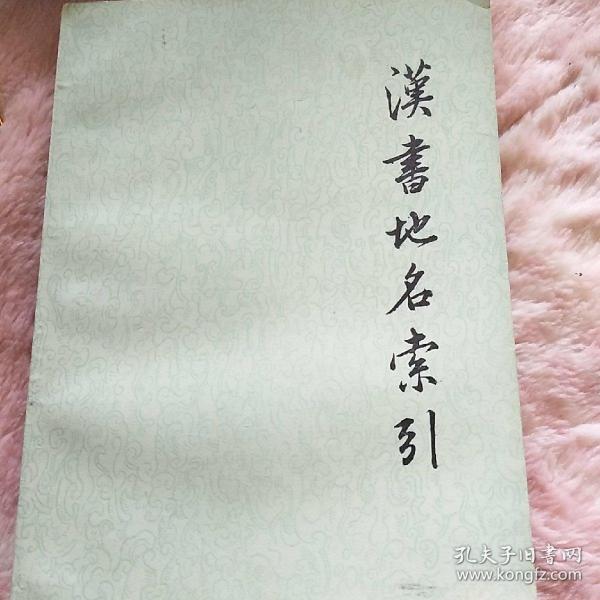 漢書地名索引
孔夫子旧書网
www.kongfz.com